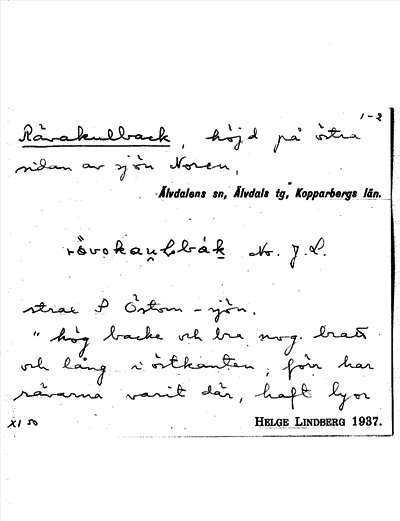 1-2
Rävakulback, höjd på östra
sidan av sjön Noren,
Älvdalens sn, Älvdals tg, Kopparbergs län.
No. J.L.
strax S Östom-sjön.
"hög backe och bra nog bratt
och lång i östkanten, förr har
rävarna varit där, haft lyor
XI 50
HELGE LINDBERG 1937.